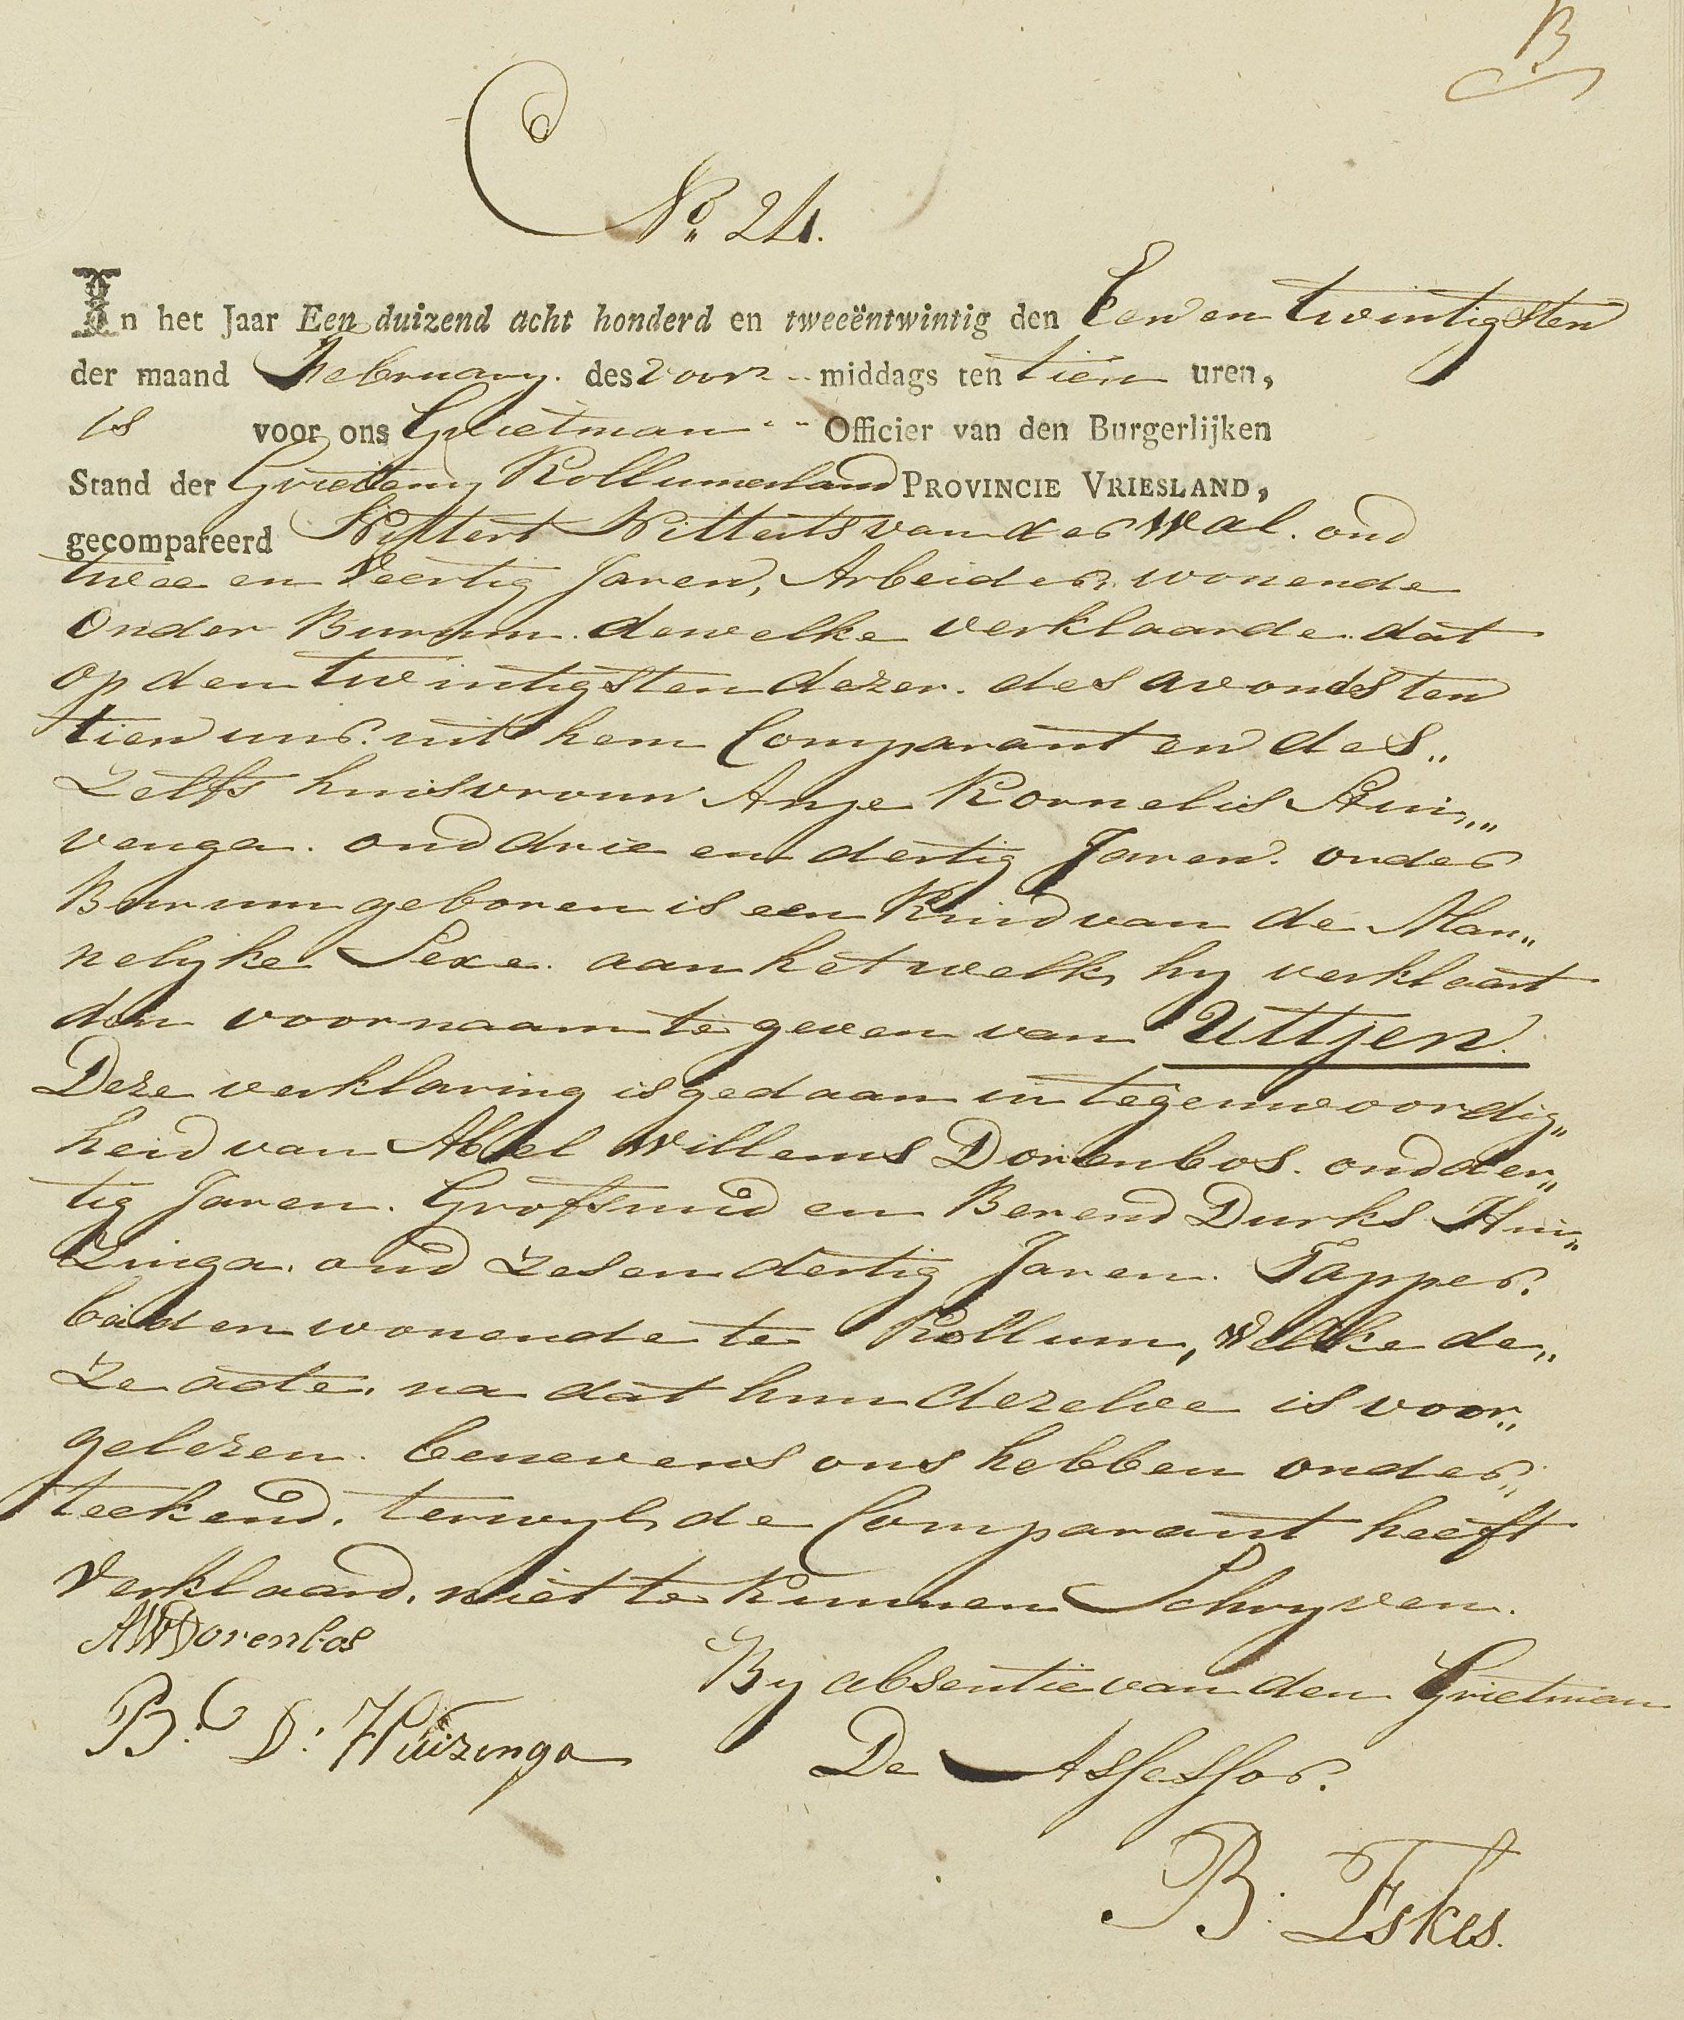 B
N° 24.
In het Jaar Een duizend acht honderd en tweeëntwintig den Een en twintigsten
der maand February. des voor middags ten tien uren,
is voor ons Grietman Officier van den Burgerlijken
Stand der Grieteny Kollumerland PROVINCIE VRIESLAND,
gecompareerd Wittert Witterts van der Wal. oud
twee en Veertig Jaren, Arbeider, wonende
onder Burum. dewelke verklaarde. dat
op den twintigsten dezer. des avonds ten
tien uur. uit hem Comparant en des„
zelfs huisvrouw Anje Kornelis Stui„
venga. oud drie en dertig Jaren. onder
Burum geboren is een Kind van de Man„
nelyke Sexe. aan het welk hy verklaart
den voornaam te geven van Uttjen.
Deze verklaring is gedaan in tegenwoordig„
heid van Abel Willems Dorenbos. oud der„
tig Jaren. Grofsmid en Berend Durks Hui„
zinga. oud zes en dertig Jaren. Tapper.
beiden wonende te Kollum, Welke de„
ze acte. na dat hun dezelve is voor„
gelezen. benevens ons hebben onder„
teekend. terwyl de Comparant heeft
verklaard. niet te kunnen Schryven.
AWDorenbos
By absentie van den Grietman
B. D: Huizenga
De Assessor.
B: Eskes.